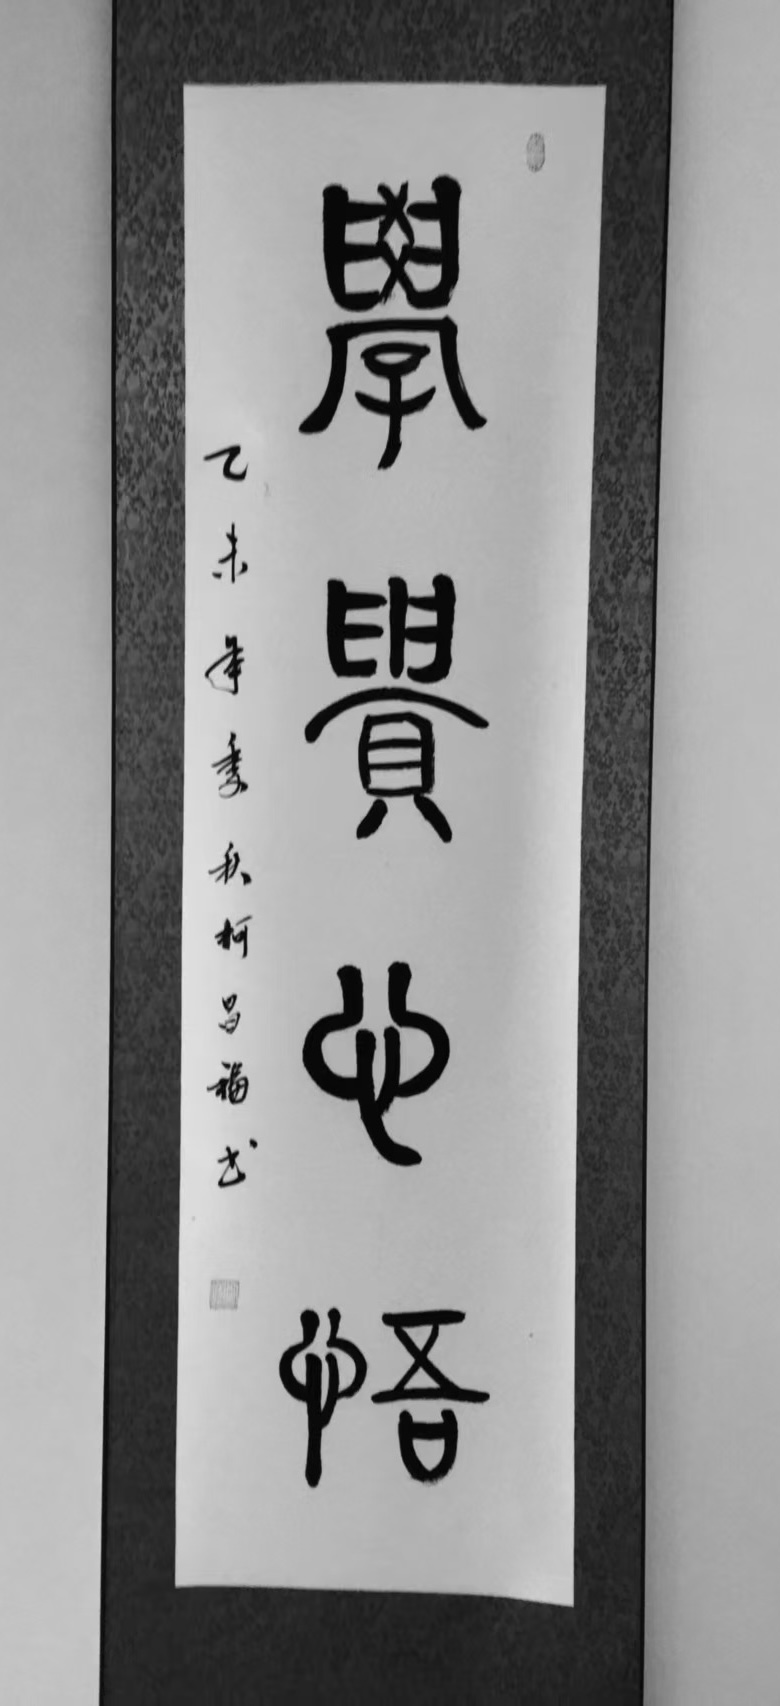 學貴心悟
乙未年季秋柯昌福书